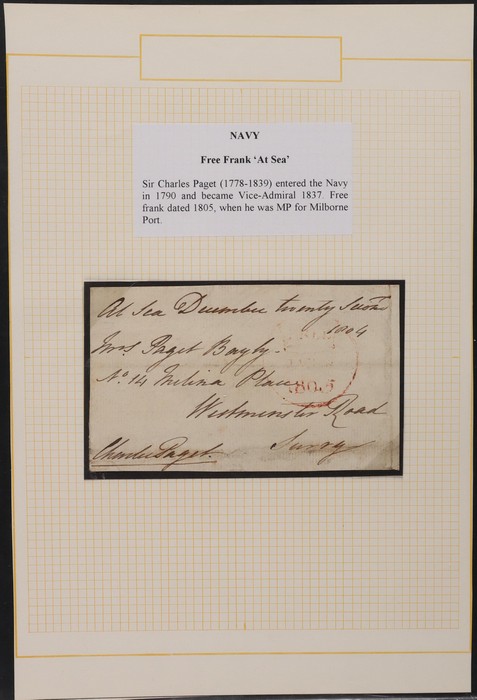 NAVY
Free Frank 'At Sea'
Sir Charles Paget (1778-1839) entered the Navy
in 1790 and became Vice-Admiral 1837. Free
frank dated 1805, when he was MP for Milborne
Port.
At Sea December twenty
1804
Mrs Paget Bayly
No. 14 Melina Place
Westminster Road
Surry
Charles Paget.
1805